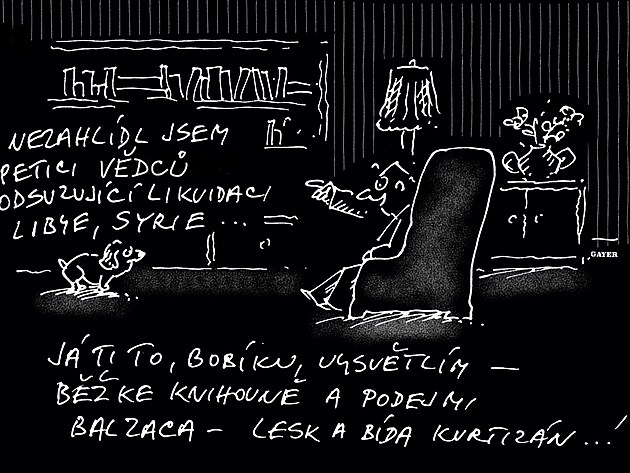 NEZAHLÍDL JSEM
PETICI VĚDCŮ
ODSUZUJÍCÍ LIKVIDACI
LIBYE, SYRIE ...
GAYER
JÁ TI TO, BOBÍKU, VYSVĚTLÍM —
BĚŽ KE KNIHOVNĚ A PODEJ MI
BALZACA – LESK A BÍDA KURTIZÁN...!